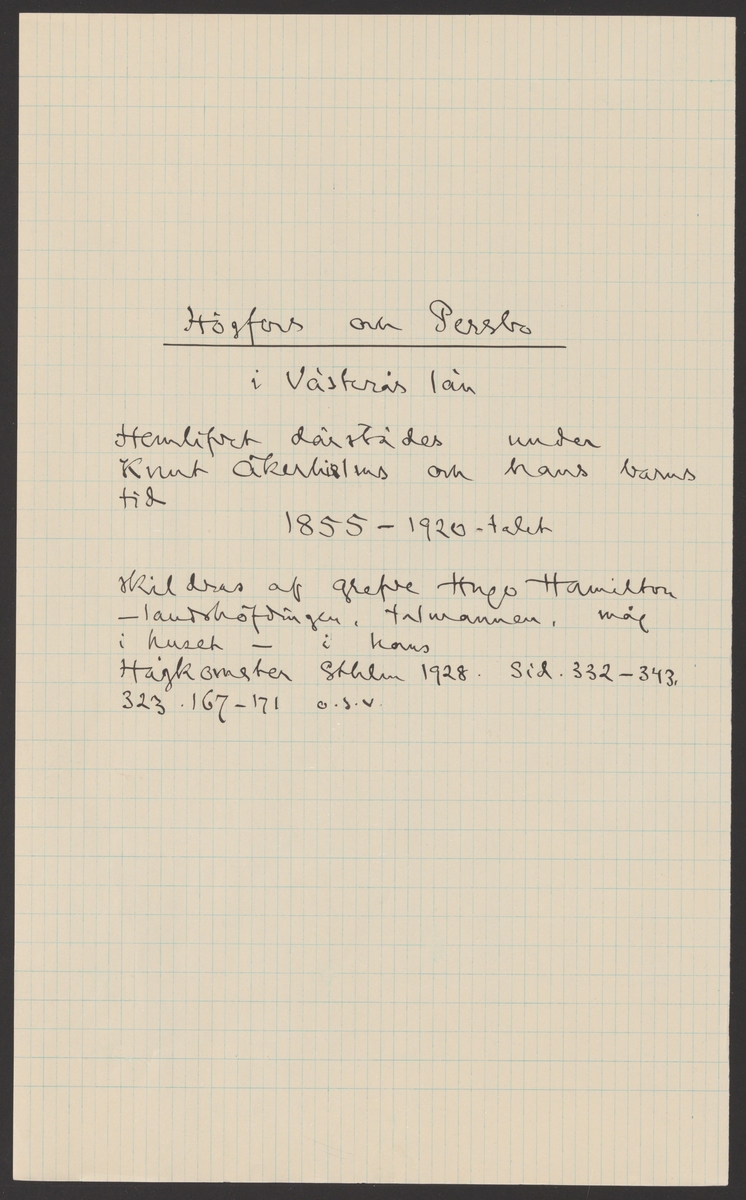 Högfors och Persbo
i Västerås län
Hemlifvet därstädes under
Knut Åkerhielms och hans barns
tid
1855 – 1920-talet
skildras af grefve Hugo Hamilton
– landshöfdingen, talmannen, måg
i huset – i hans
Hågkomster Sthlm 1928. Sid. 332 – 343,
323. 167 – 171 o.s.v.